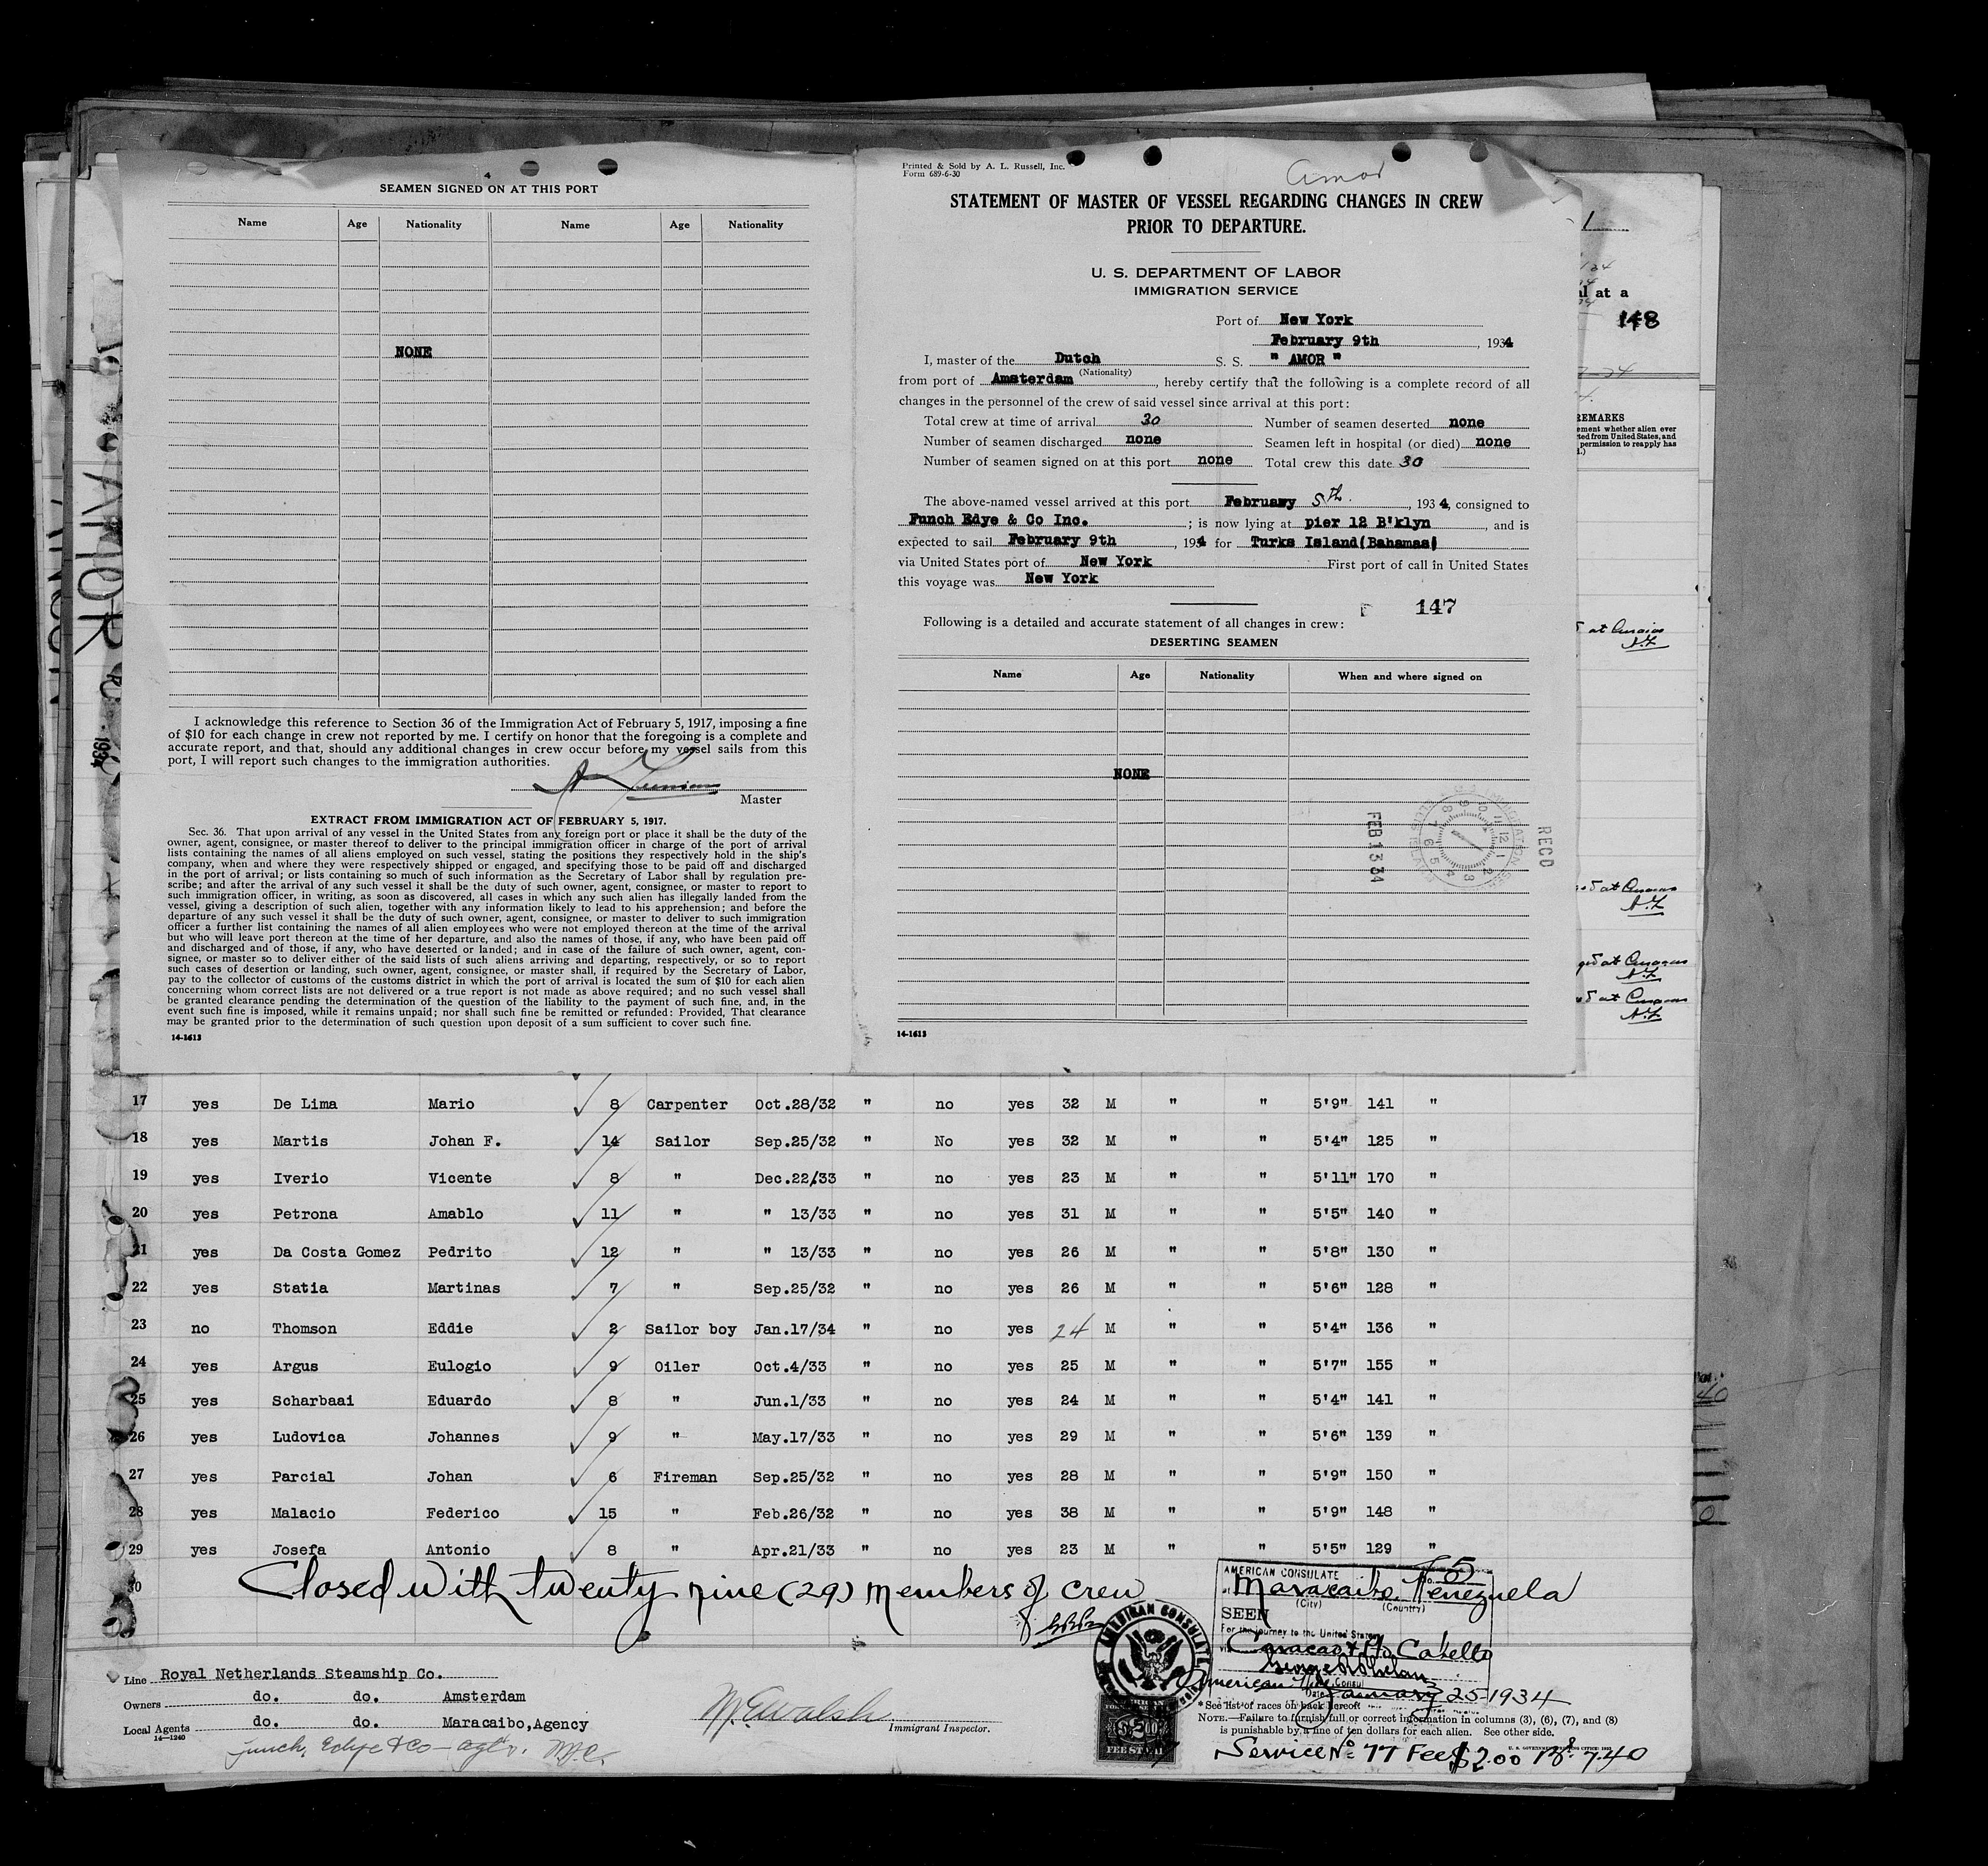 SEAMEN SIGNED ON AT THIS PORT
Name Age Nationality Name Age Nationality
NONE
I acknowledge this reference to Section 36 of the Immigration Act of February 5, 1917, imposing a fine
of $10 for each change in crew not reported by me. I certify on honor that the foregoing is a complete and
accurate report, and that, should any additional changes in crew occur before my vessel sails from this
port, I will report such changes to the immigration authorities.
Master
EXTRACT FROM IMMIGRATION ACT OF FEBRUARY 5, 1917.
Sec. 36. That upon arrival of any vessel in the United States from any foreign port or place it shall be the duty of the
owner, agent, consignee, or master thereof to deliver to the principal immigration officer in charge of the port of arrival
lists containing the names of all aliens employed on such vessel, stating the positions they respectively hold in the ship's
company, when and where they were respectively shipped or engaged, and specifying those to be paid off and discharged
in the port of arrival; or lists containing so much of such information as the Secretary of Labor shall by regulation pre-
scribe; and after the arrival of any such vessel it shall be the duty of such owner, agent, consignee, or master to report to
such immigration officer, in writing, as soon as discovered, all cases in which any such alien has illegally landed from the
vessel, giving a description of such alien, together with any information likely to lead to his apprehension; and before the
departure of any such vessel it shall be the duty of such owner, agent, consignee, or master to deliver to such immigration
officer a further list containing the names of all alien employees who were not employed thereon at the time of the arrival
but who will leave port thereon at the time of her departure, and also the names of those, if any, who have been paid off
and discharged and of those, if any, who have deserted or landed; and in case of the failure of such owner, agent, con-
signee, or master so to deliver either of the said lists of such aliens arriving and departing, respectively, or so to report
such cases of desertion or landing, such owner, agent, consignee, or master shall, if required by the Secretary of Labor,
pay to the collector of customs of the customs district in which the port of arrival is located the sum of $10 for each alien
concerning whom correct lists are not delivered or a true report is not made as above required; and no such vessel shall
be granted clearance pending the determination of the question of the liability to the payment of such fine, and, in the
event such fine is imposed, while it remains unpaid; nor shall such fine be remitted or refunded: Provided, That clearance
may be granted prior to the determination of such question upon deposit of a sum sufficient to cover such fine.
14-1613
Printed & Sold by A. L. Russell, Inc.
Form 689-6-30
Amor
STATEMENT OF MASTER OF VESSEL REGARDING CHANGES IN CREW
PRIOR TO DEPARTURE.
U. S. DEPARTMENT OF LABOR
IMMIGRATION SERVICE
Port of New York
February 9th, 1934
I, master of the Dutch S. S. " AMOR "
(Nationality)
from port of Amsterdam, hereby certify that the following is a complete record of all
changes in the personnel of the crew of said vessel since arrival at this port:
Total crew at time of arrival 30 Number of seamen deserted none
Number of seamen discharged none Seamen left in hospital (or died) none
Number of seamen signed on at this port none Total crew this date 30
The above-named vessel arrived at this port February 5th, 1934, consigned to
Funch Edye & Co Inc. ; is now lying at pier 12 B'klyn, and is
expected to sail February 9th, 1934 for Turks Island(Bahamas)
via United States port of New York First port of call in United States
this voyage was New York
147
Following is a detailed and accurate statement of all changes in crew:
DESERTING SEAMEN
Name Age Nationality When and where signed on
NONE
FEB 13 34
RECD
14-1613
al at a
148
REMARKS
AMOR
1934
17 yes De Lima Mario 8 Carpenter Oct.28/32 " no yes 32 M " " 5'9" 141 "
18 yes Martis Johan F. 14 Sailor Sep.25/32 " No yes 32 M " " 5'4" 125 "
19 yes Iverio Vicente 8 " Dec.22/33 " no yes 23 M " " 5'11" 170 "
20 yes Petrona Amablo 11 " " 13/33 " no yes 31 M " " 5'5" 140 "
21 yes Da Costa Gomez Pedrito 12 " " 13/33 " no yes 26 M " " 5'8" 130 "
22 yes Statia Martinas 7 " Sep.25/32 " no yes 26 M " " 5'6" 128 "
23 no Thomson Eddie 2 Sailor boy Jan.17/34 " no yes 24 M " " 5'4" 136 "
24 yes Argus Eulogio 9 Oiler Oct.4/33 " no yes 25 M " " 5'7" 155 "
25 yes Scharbaai Eduardo 8 " Jun.1/33 " no yes 24 M " " 5'4" 141 "
26 yes Ludovica Johannes 9 " May.17/33 " no yes 29 M " " 5'6" 139 "
27 yes Parcial Johan 6 Fireman Sep.25/32 " no yes 28 M " " 5'9" 150 "
28 yes Malacio Federico 15 " Feb.26/32 " no yes 38 M " " 5'9" 148 "
29 yes Josefa Antonio 8 " Apr.21/33 " no yes 23 M " " 5'5" 129 "
30 Closed with twenty nine (29) members of crew
AMERICAN CONSULATE
Maracaibo, Venezuela
(City) (Country)
SEEN
For the journey to the United States
via Curacao & Pto Cabello
American Vice Consul
Date January 25-1934
Line Royal Netherlands Steamship Co.
Owners do. do. Amsterdam
Local Agents do. do. Maracaibo,Agency
14-1240
Funch, Edye & Co - agts.
Immigrant Inspector.
* See list of races on back hereof
NOTE.—Failure to furnish full or correct information in columns (3), (6), (7), and (8)
is punishable by a fine of ten dollars for each alien. See other side.
Service No 77 Fee $2.00 Bs. 7.40